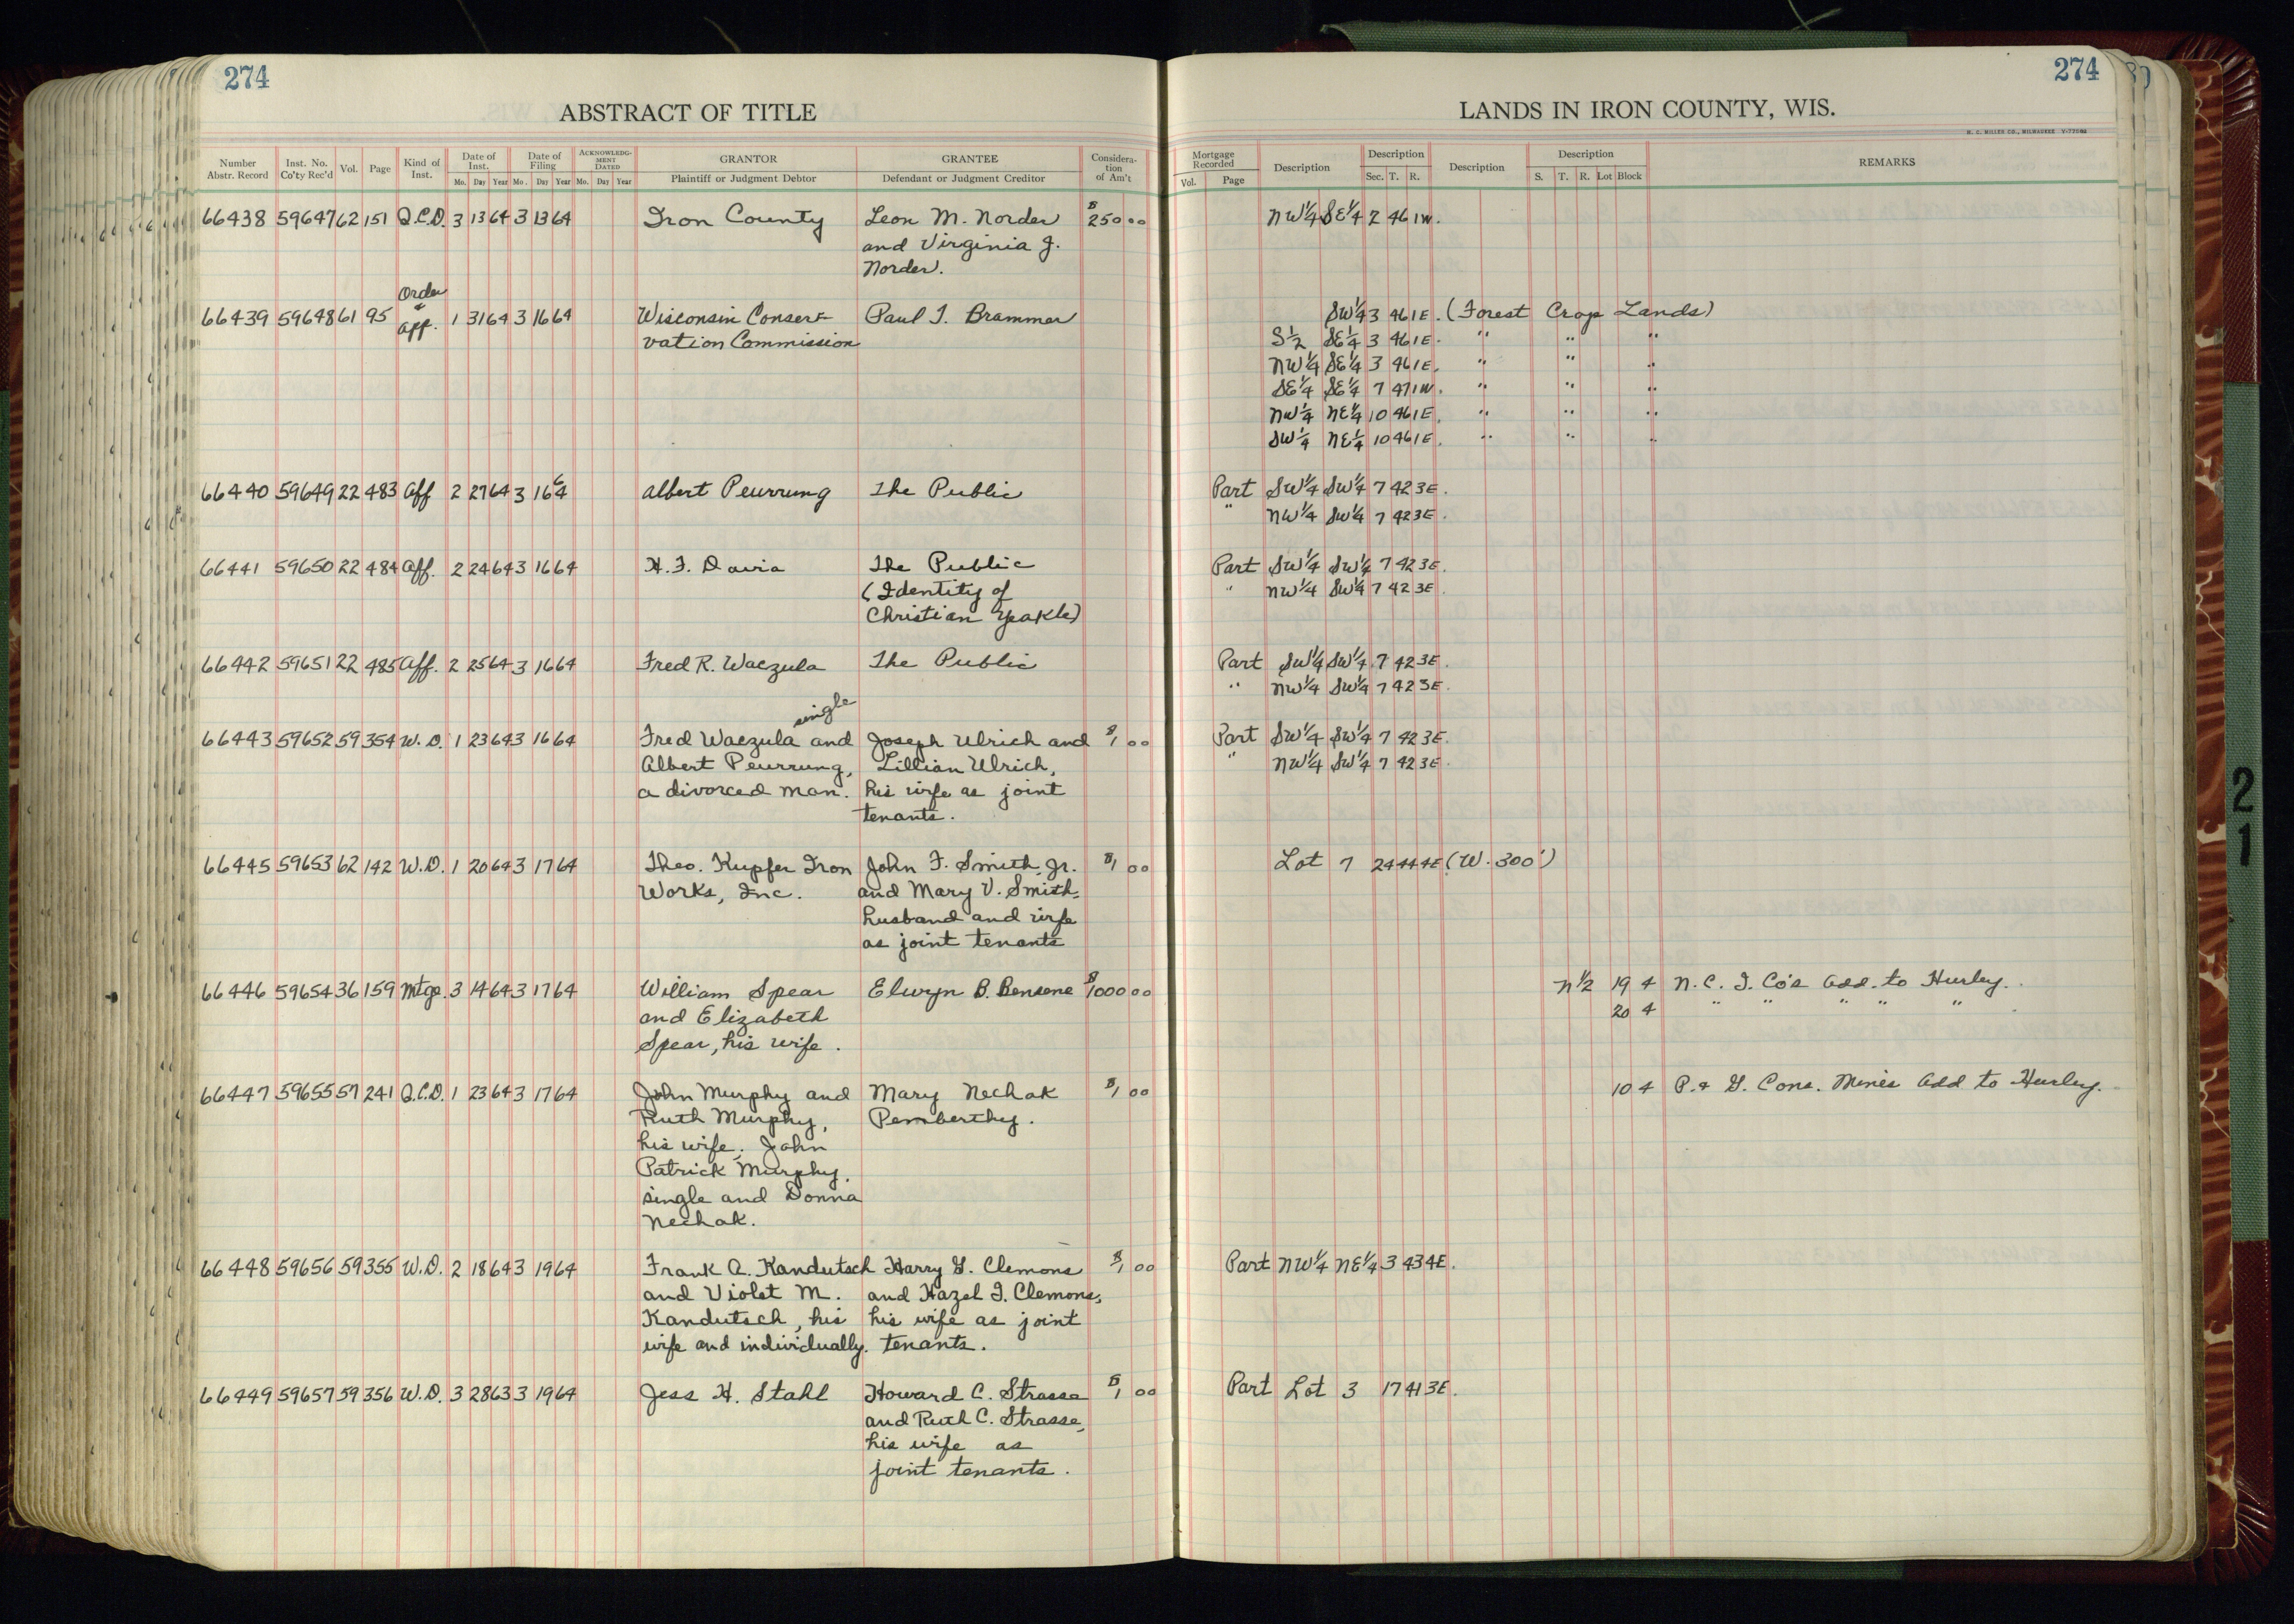 274
ABSTRACT OF TITLE
Number Abstr. Record Inst. No. Co'ty Rec'd Vol. Page Kind of Inst. Date of Inst. Mo. Day Year Date of Filing Mo. Day Year ACKNOWLEDGMENT DATED Mo. Day Year GRANTOR Plaintiff or Judgment Debtor GRANTEE Defendant or Judgment Creditor Consideration of Am't
66438 59647 62 151 Q.C.D. 3 13 64 3 13 64 Iron County Leon M. Norder $250 00
and Virginia J.
Norder.
Order
&
66439 59648 61 95 Aff. 1 31 64 3 16 64 Wisconsin Conser- Paul I. Brammer
vation Commission
66440 59649 22 483 Aff 2 27 64 3 16 64 Albert Peurrung The Public
66441 59650 22 484 Aff. 2 24 64 3 16 64 H. F. Davia The Public
(Identity of
Christian Yeakle)
66442 59651 22 485 Aff. 2 25 64 3 16 64 Fred R. Waczula The Public
single
66443 59652 59 354 W.D. 1 23 64 3 16 64 Fred Waczula and Joseph Ulrich and $1 00
Albert Peurrung, Lillian Ulrich,
a divorced man. his wife as joint
tenants.
66445 59653 62 142 W.D. 1 20 64 3 17 64 Theo. Kupfer Iron John F. Smith, Jr. $1 00
Works, Inc. and Mary V. Smith,
husband and wife
as joint tenants
66446 59654 36 159 Mtge. 3 14 64 3 17 64 William Spear Elwyn B. Bensene $1000 00
and Elizabeth
Spear, his wife.
66447 59655 57 241 Q.C.D. 1 23 64 3 17 64 John Murphy and Mary Nechak $1 00
Ruth Murphy, Pemberthy.
his wife; John
Patrick Murphy,
single and Donna
Nechak.
66448 59656 59 355 W.D. 2 18 64 3 19 64 Frank A. Kandutsch Harry G. Clemons $1 00
and Violet M. and Hazel I. Clemons,
Kandutsch, his his wife as joint
wife and individually. tenants.
66449 59657 59 356 W.D. 3 28 63 3 19 64 Jess H. Stahl Howard C. Strasse $1 00
and Ruth C. Strasse,
his wife as
joint tenants.
274
LANDS IN IRON COUNTY, WIS.
H. C. MILLER CO., MILWAUKEE
Mortgage Recorded Vol. Page Description Description Sec. T. R. Description Description S. T. R. Lot Block REMARKS
NW¼ SE¼ 2 46 1W.
SW¼ 3 46 1E. (Forest Crop Lands)
S½ SE¼ 3 46 1E. " " "
NW¼ SE¼ 3 46 1E. " " "
SE¼ SE¼ 7 47 1W. " " "
NW¼ NE¼ 10 46 1E. " " "
SW¼ NE¼ 10 46 1E. " " "
Part SW¼ SW¼ 7 42 3E.
" NW¼ SW¼ 7 42 3E.
Part SW¼ SW¼ 7 42 3E.
" NW¼ SW¼ 7 42 3E.
Part SW¼ SW¼ 7 42 3E.
" NW¼ SW¼ 7 42 3E.
Part SW¼ SW¼ 7 42 3E.
" NW¼ SW¼ 7 42 3E.
Lot 7 24 44 4E (W. 300')
N½ 19 4 N. C. I. Co's Add. to Hurley.
20 4 " " " " "
10 4 P. & G. Cons. Mines Add to Hurley.
Part NW¼ NE¼ 3 43 4E.
Part Lot 3 17 41 3E.
21